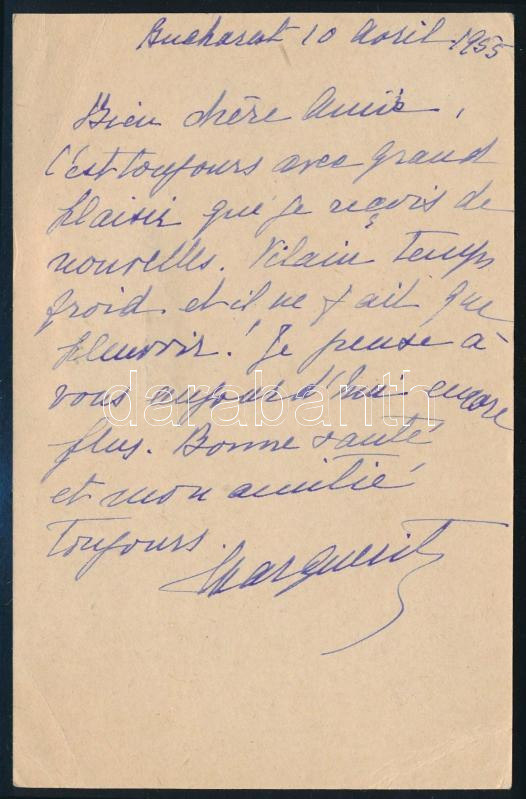 Bucharest 10 Avril 1955
Bien chère Amie,
C'est toujours avec grand
plaisir que je reçois de
nouvelles. Vilain temps
froid et il ne fait que
pleuvoir! Je pense à
vous aujourd'hui encore
plus. Bonne santé
et mon amitié
toujours.
Marguerite
darabanth